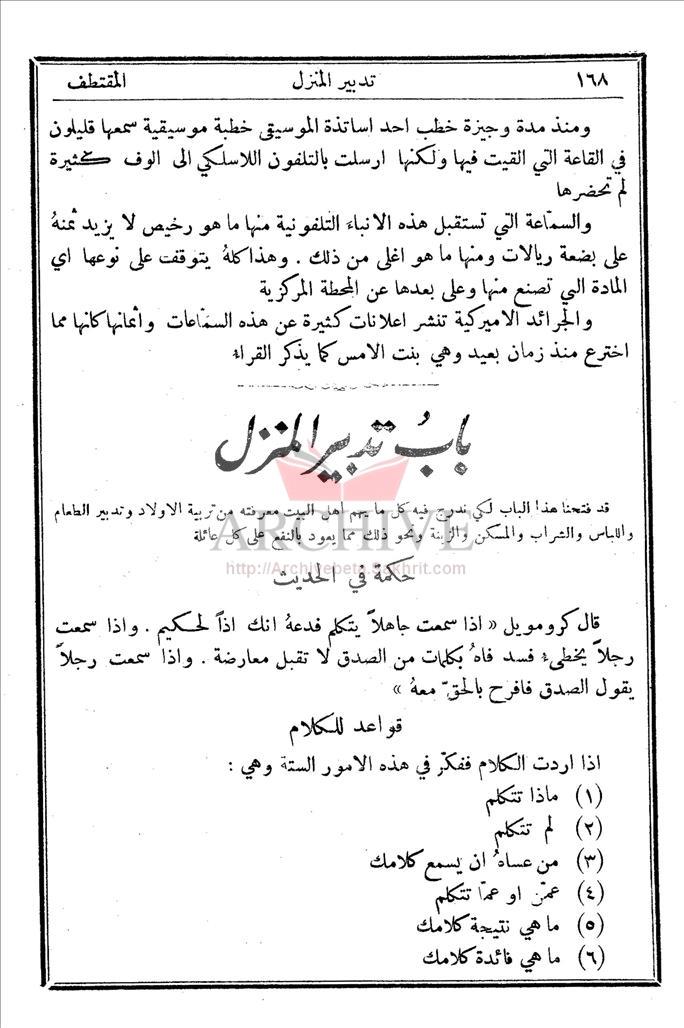 ١٦٨ تدبير المنزل المقتطف
ومنذ مدة وجيزة خطب احد اساتذة الموسيقى خطبة موسيقية سمعها قليلون
في القاعة التي القيت فيها ولكنها ارسلت بالتلفون اللاسلكي الى الوف كثيرة
لم تحضرها
والسمّاعة التي تستقبل هذه الانباء التلفونية منها ما هو رخيص لا يزيد ثمنهُ
على بضعة ريالات ومنها ما هو اغلى من ذلك . وهذا كلهُ يتوقفت على نوعها اي
المادة التي تصنع منها وعلى بعدها عن المحطة المركزية
والجرائد الاميركية تنشر اعلانات كثيرة عن هذه السمّاعات واثمانها كانها مما
اخترع منذ زمان بعيد وهي بنت الامس كما يذكر القراء
بابُ تدبير المنزل
قد فتحنا هذا الباب لكي ندرج فيه كل ما يهم اهل البيت معرفته من تربية الاولاد وتدبير الطعام
واللباس والشراب والمسكن والزينة ونحو ذلك مما يعود بالنفع على كل عائلة
ARCHIVE
http://Archivebeta.Sakhrit.com
حكمة في الحديث
قال كرومويل « اذا سمعت جاهلاً يتكلم فدعهُ انك اذاً لحكيم . واذا سمعت
رجلاً يخطىء فسد فاهُ بكلمات من الصدق لا تقبل معارضة . واذا سمعت رجلاً
يقول الصدق فافرح بالحقّ معهُ »
قواعد للكلام
اذا اردت الكلام ففكّر في هذه الامور الستة وهي :
(١) ماذا تتكلم
(٢) لم تتكلم
(٣) من عساهُ ان يسمع كلامك
(٤) عمّن او عمّا تتكلم
(٥) ما هي نتيجة كلامك
(٦) ما هي فائدة كلامك